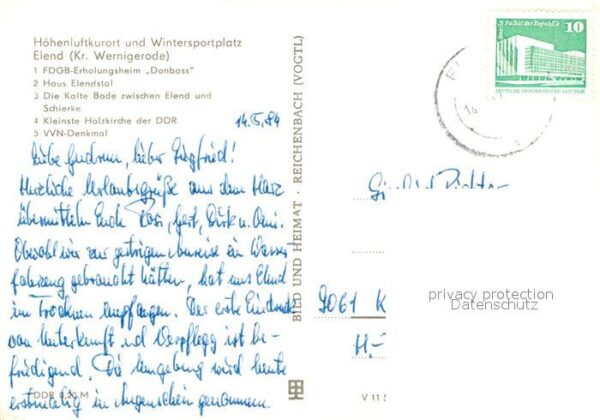 Höhenluftkurort und Wintersportplatz
Elend (Kr. Wernigerode)
1 FDGB-Erholungsheim „Donbass"
2 Haus Elendstal
3 Die Kalte Bode zwischen Elend und
Schierke
4 Kleinste Holzkirche der DDR
5 VVN-Denkmal
14.5.84
Liebe Gudrun, lieber Siegfried!
Herzliche Urlaubsgrüße aus dem Harz
übermitteln Euch Rosi, Gert, Dirk u.
Obwohl wir zur gestrigen Anreise ein Wasser
fahrzeug gebraucht hätten, hat uns Elend
im Trocknen empfangen. Der erste Eindruck
von Unterkunft und Verpflegg ist be-
friedigend. Die Umgebung wird heute
erstmalig in Augenschein genommen.
DDR 0,20 M
BILD UND HEIMAT · REICHENBACH (VOGTL)
V 11 5
Berlin Palast der Republik
10
DEUTSCHE DEMOKRATISCHE REPUBLIK
Richter
9061 K
H.-
privacy protection
Datenschutz